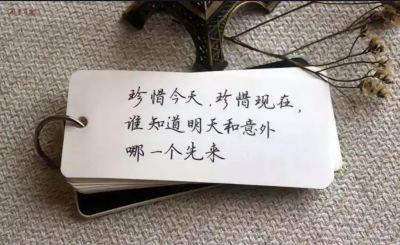 珍惜今天，珍惜现在，
谁知道明天和意外
哪一个先来